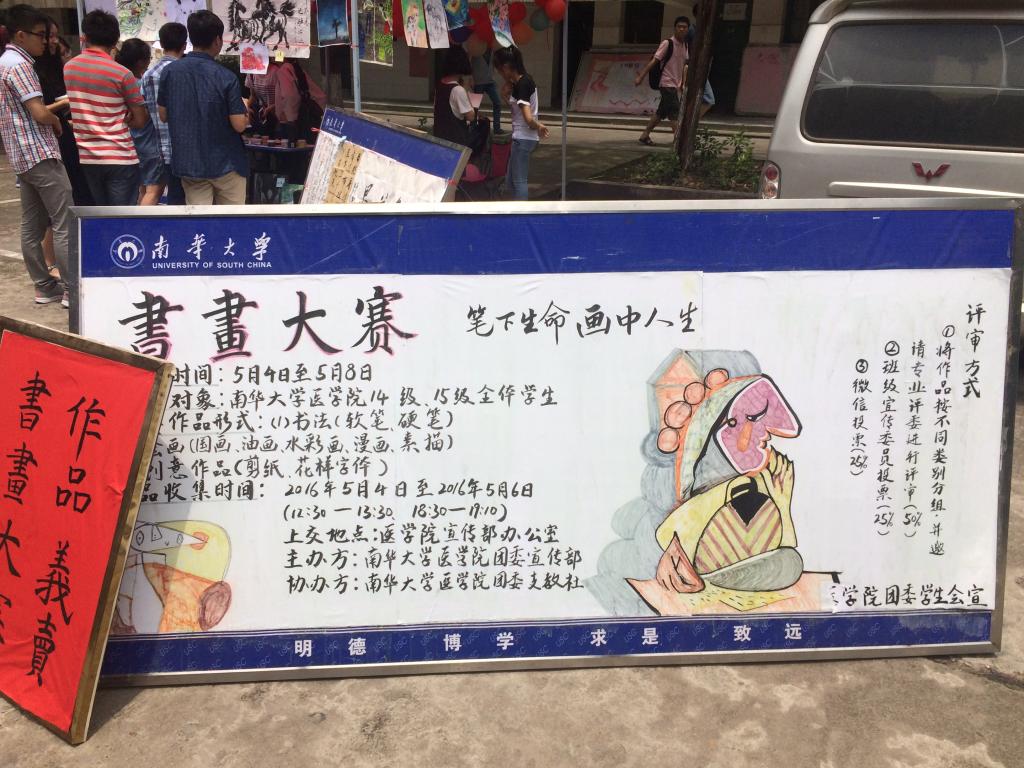 南華大學
UNIVERSITY OF SOUTH CHINA
書畫大赛
笔下生命 画中人生
时间：5月4日至5月8日
对象：南华大学医学院14级、15级全体学生
作品形式：(1)书法(软笔、硬笔)
绘画(国画、油画、水彩画、漫画、素描)
创意作品(剪纸、花样字体)
品收集时间：2016年5月4日至2016年5月6日
(12:30—13:30, 18:30—19:10)
上交地点：医学院宣传部办公室
主办方：南华大学医学院团委宣传部
协办方：南华大学医学院团委支教社
评审方式
①将作品按不同类别分组，并邀
请专业评委进行评审(50%)
②班级宣传委员投票(25%)
③微信投票(25%)
学院团委学生会宣
明德 博学 求是 致远
作品義賣
書畫大